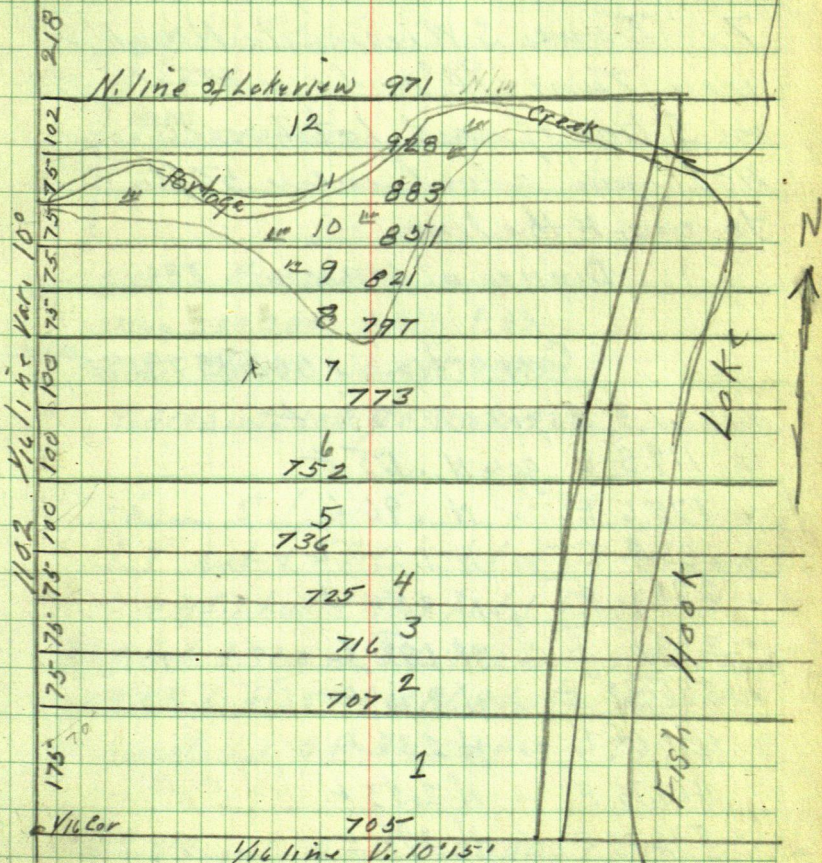 218
N. line of Lakeview 971
102
12
928
Creek
75
Portage
11
883
75
10
851
75
9
821
75
8
797
100
7
773
100
6
752
100
5
736
75
725
4
75
716
3
75
707
2
175
1
1/16 Cor
705
1/16 line V. 10°15'
1102 1/16 line Var. 10°
Fish Hook Lake
N